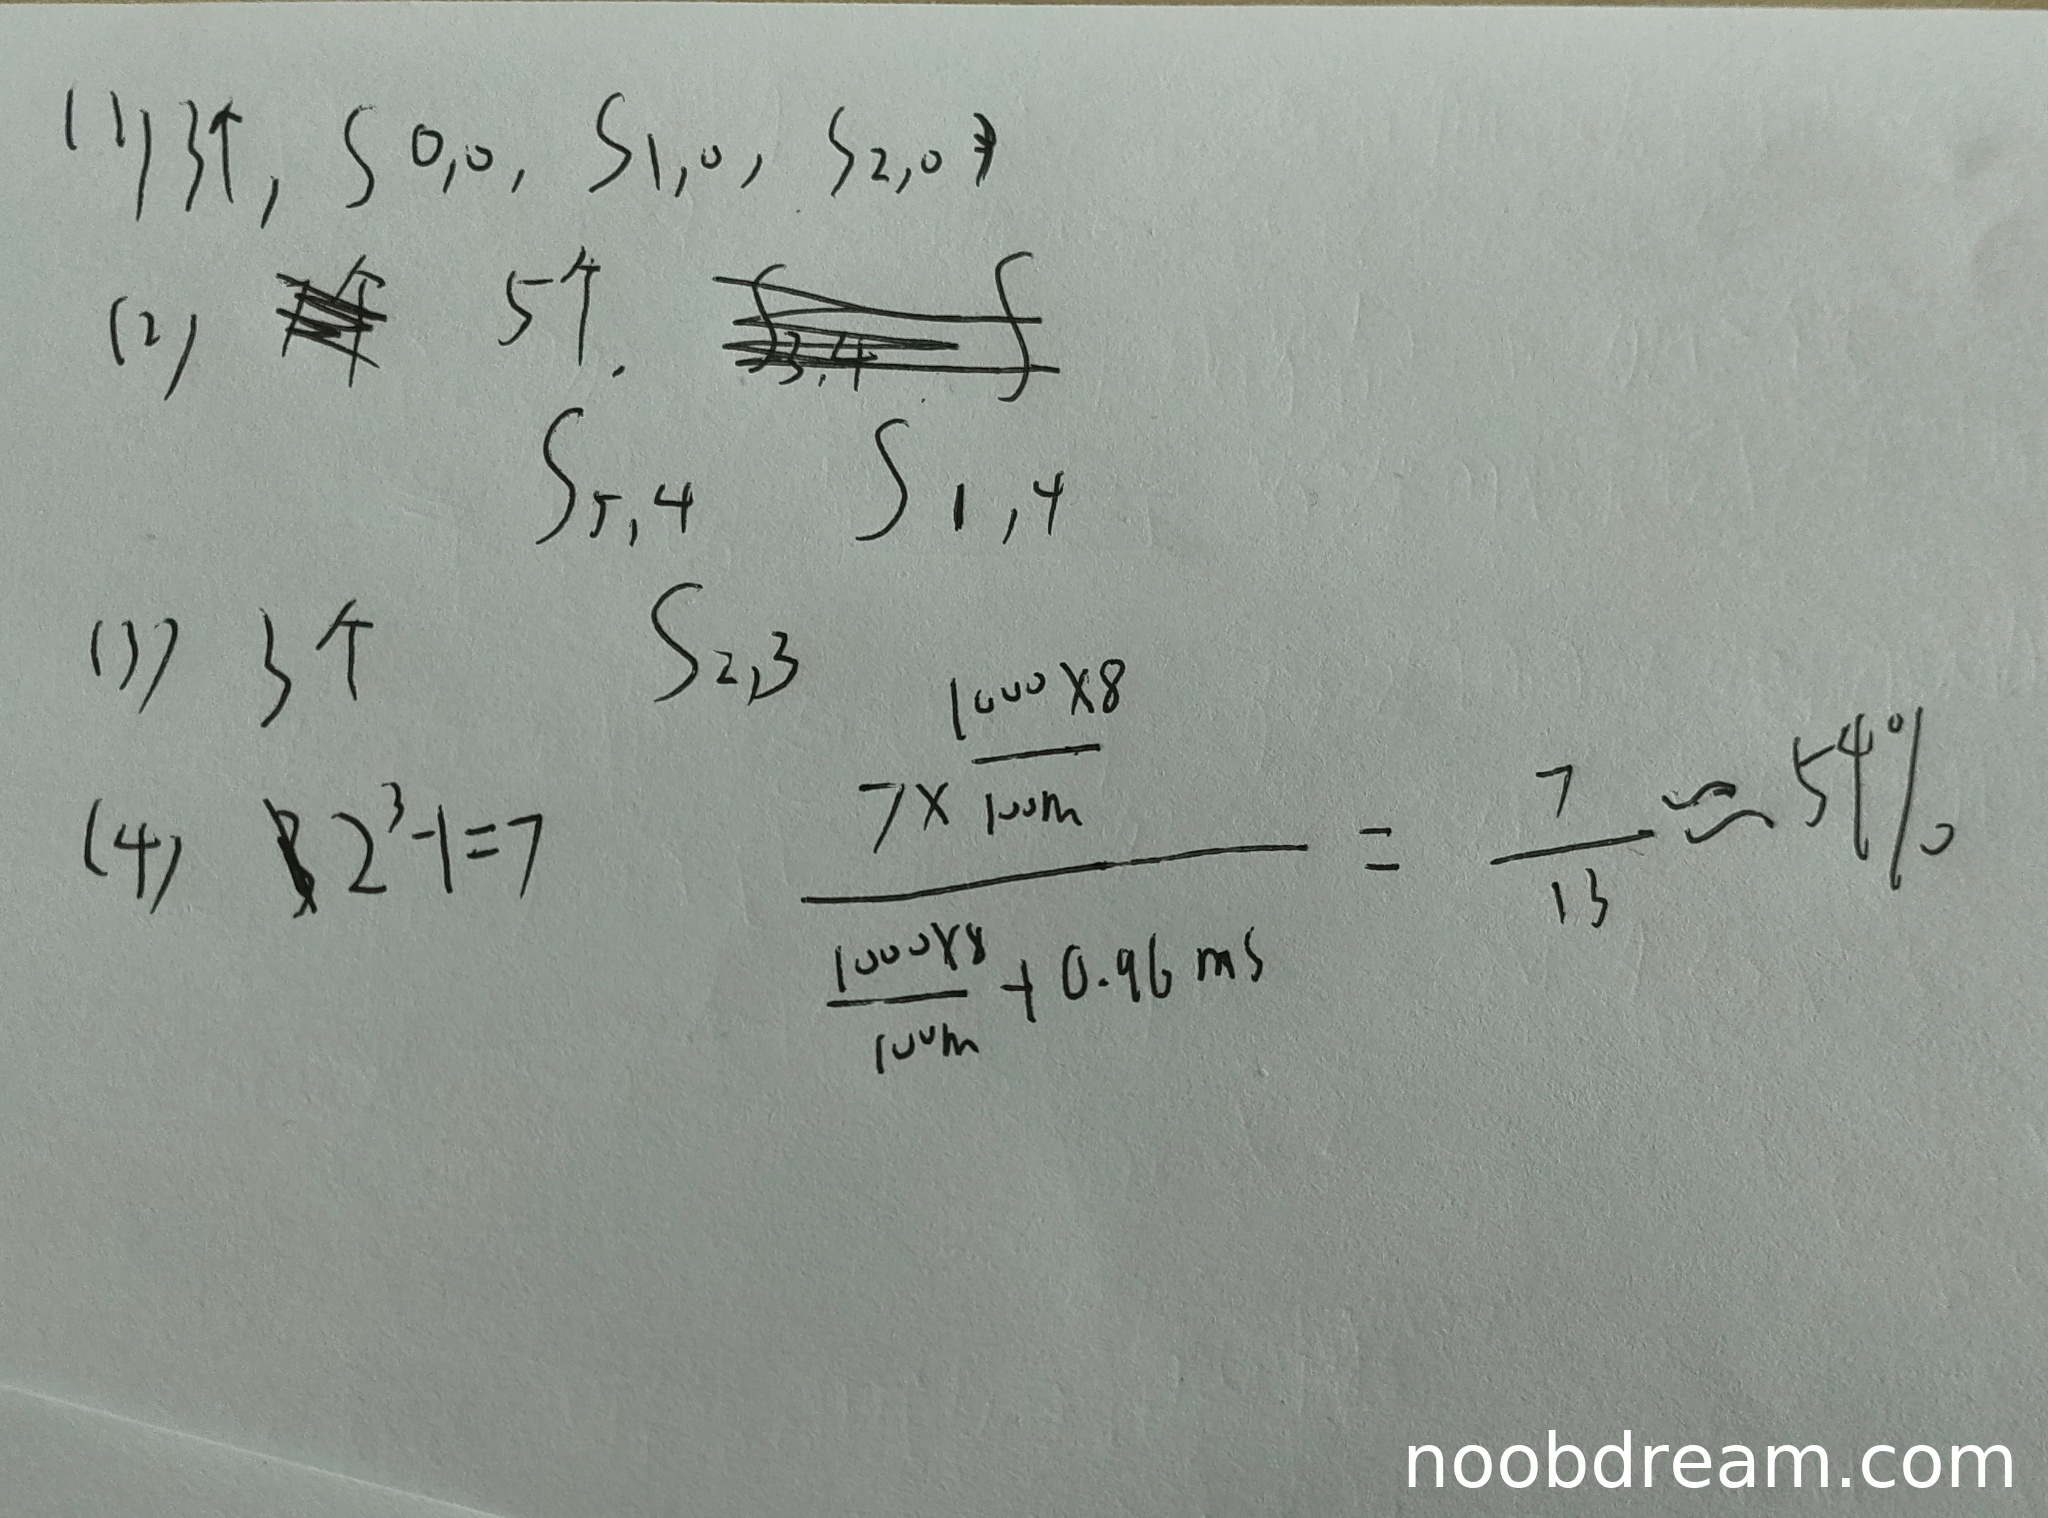 (1) 3个, S0,0, S1,0, S2,0
(2) 5个.
S5,4 S1,4
(3) 3个 S2,3
(4) 2³-1=7 (7×(1000×8)/(100m))/((1000×8)/(100m)+0.96ms) = 7/13 ≈ 54%
noobdream.com